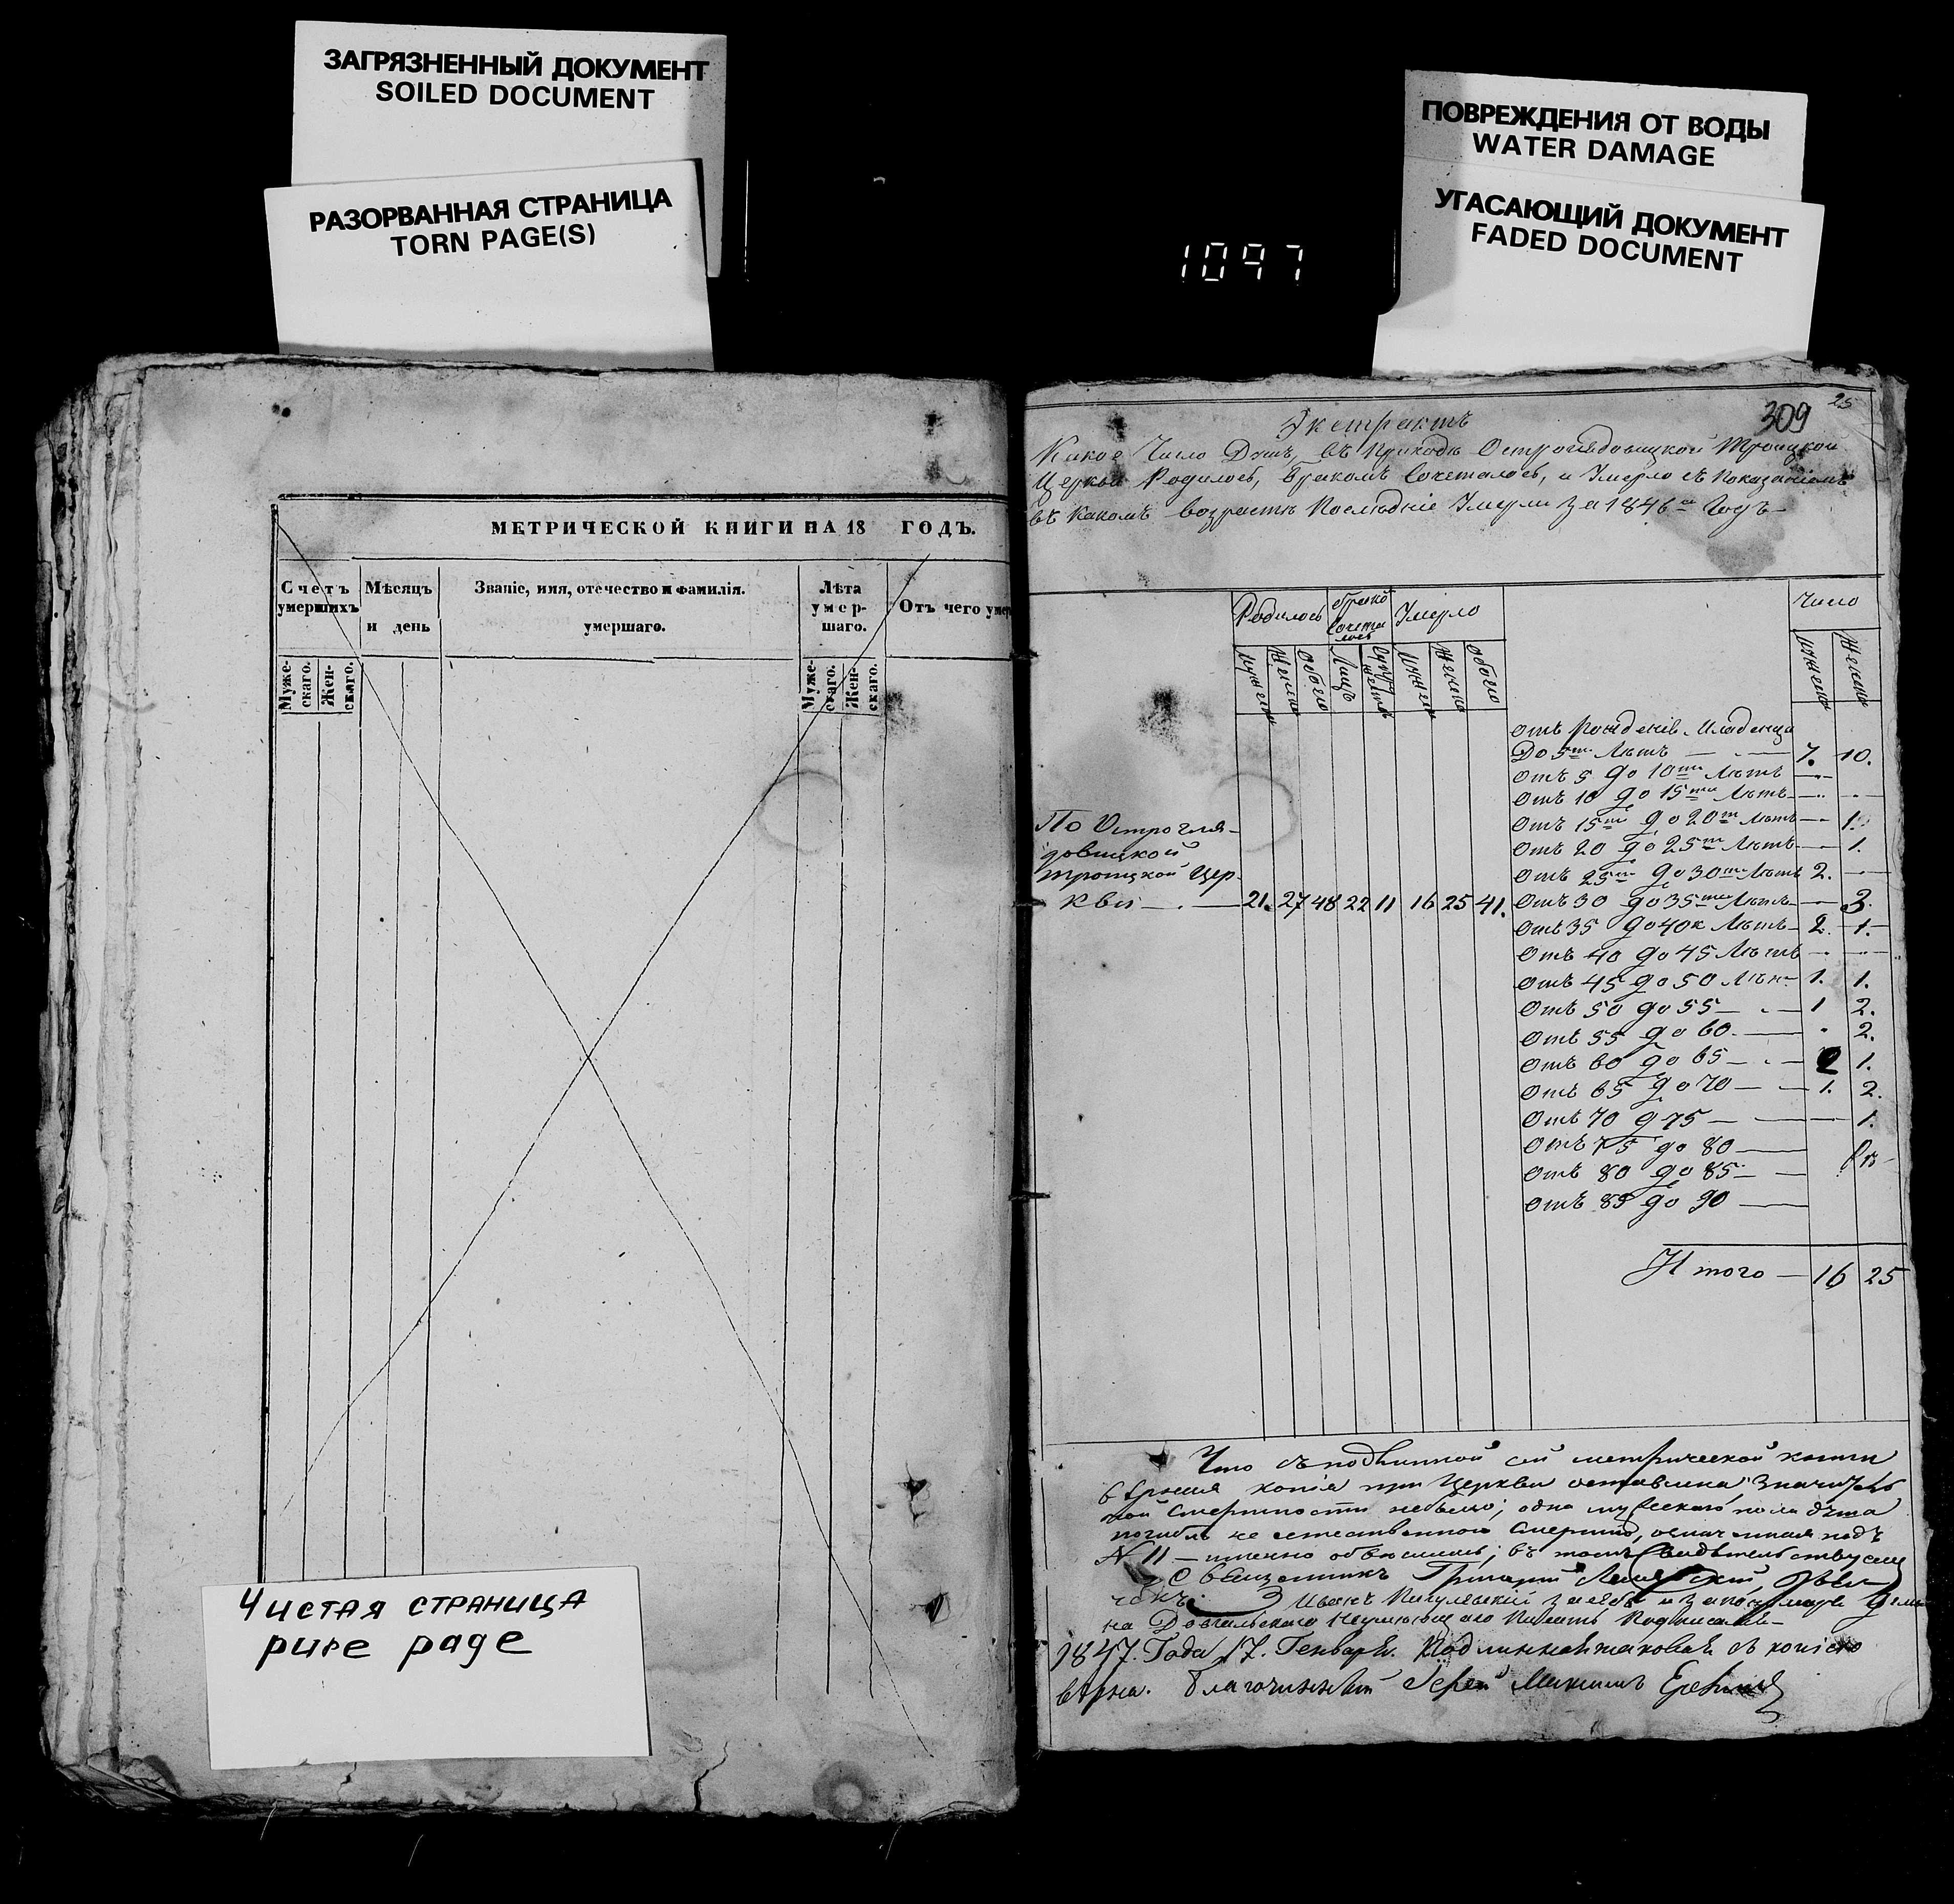 ЗАГРЯЗНЕННЫЙ ДОКУМЕНТ
SOILED DOCUMENT
РАЗОРВАННАЯ СТРАНИЦА
TORN PAGE(S)
ПОВРЕЖДЕНИЯ ОТ ВОДЫ
WATER DAMAGE
УГАСАЮЩИЙ ДОКУМЕНТ
FADED DOCUMENT
1097
МЕТРИЧЕСКОЙ КНИГИ НА 18 ГОДЪ.
Счетъ умершихъ
Мѣсяцъ и день
Званіе, имя, отечество и фамилія.
умершаго.
Лѣта умер-шаго.
Отъ чего уме
Муже-скаго.
Жен-скаго.
Муже-скаго.
Жен-скаго.
Чистая страница
pure page
309 25
Экстрактъ
Какое Число Душъ, въ Приходѣ Острогляdовицкой Троицкой
Церкви Родилось, бракомъ Сочеталось, и Умерло съ Показаніемъ
въ Какомъ возрастѣ Послѣдніе Умерли За 1846 Годъ
Родилось
брако Сочета лось
Умерло
Число
обоего
Лицъ
обоего
отъ Рожденія Младенца
До 5 Лѣтъ 7. 10.
Отъ 5 до 10 Лѣтъ
Отъ 10 до 15 Лѣтъ
Отъ 15 до 20 Лѣтъ 1.
Отъ 20 до 25 Лѣтъ 1.
Отъ 25 до 30 Лѣтъ 2.
По Острогля-
довицкой
Троицкой Цер-
кви 21. 27 48 22 11 16 25 41.
Отъ 30 до 35 Лѣтъ 3.
Отъ 35 до 40 Лѣтъ 2. 1.
Отъ 40 до 45 Лѣтъ
Отъ 45 до 50 Лѣтъ 1. 1.
Отъ 50 до 55 1 2.
Отъ 55 до 60 2.
Отъ 60 до 65 2 1.
Отъ 65 до 70 1. 2.
Отъ 70 д 75 1.
Отъ 75 до 80
Отъ 80 до 85
Отъ 85 до 90
Итого 16 25
Что съ подлинной сей метрической книги
вѣрная копія при Церкви оставлена, Значитель
ной Смертности небыло; одно мужескаго пола
погибл не естественною Смертію, означенная подъ
N 11 именно объяснено; въ томъ Свидѣтельствуемъ
Священникъ Григорій
Иванъ
1847. Года 17. Генваря. Подлинной таковой съ копіею
вѣрна. Благочинный Іерей Максимъ